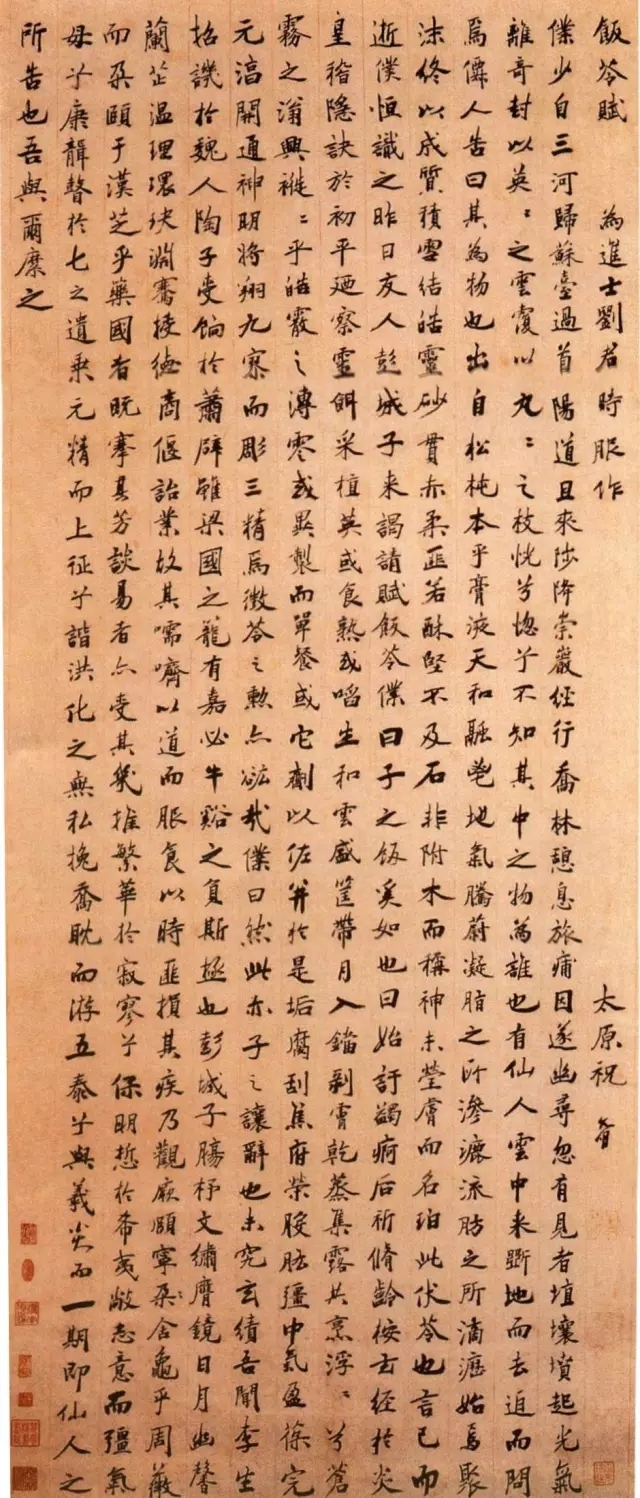 飯苓賦 為進士劉君時服作 太原祝 𥅆
僕少自三河歸蘇臺過首陽道且來陟降崇巖經行喬林憩息旅痡因遂幽尋忽有見者埴壤墳起光氣
離奇封以英〻之雲覆以丸〻之枝恍兮惚兮不知其中之物為誰也有仙人雲中来斸地而去追而問
焉儛人告曰其為物也出自松杶本乎膏液天和融鬯地氣騰蔚凝脂之所滲漉流肪之所滴瀝始焉聚
沫終以成質積雪結皓靈砂貫赤柔匪若酥堅不及石非附木而稱神未瑩膚而名珀此伏苓也言已而
逝僕恒識之昨日友人彭城子来謁請賦飯苓僕曰子之飯奚如也曰始訏蠲痾后祈脩齡按古經於炎
皇稽隱訣於初平迺察靈餌采植英或食熟或啗生和雲盛筐帶月入鐺剝膚乾蒸集露共烹浮〻兮蒼
霧之滃興褷〻乎皓霰之漙零或異製而單餐或它劑以佐并於是垢腐刮焦府榮脧肱彊中氣盈葆完
元滈開通神明將翔九寮而彫三精焉微苓之勲亦谹哉僕曰然此亦子之讓辭也未究玄績吾聞李生
招譏於魏人陶子受餉於蕭辟雖梁國之籠有嘉必牛谿之負斯極也彭城子腸杼文繡膺鏡日月幽馨
蘭芷温理環玦淵騫接德商偃詒業故其嚅嚌以道而服食以時匪損其疾乃觀厥頤寧朵含龜乎周薇
而朶頤于漢芝乎藥國者既搴其芳談易者亦受其幾推繁華於寂寥兮保明悊於希夷敝志意而彊氣
母兮康韻聲於七之遺乗元精而上征兮諧洪化之無私挽喬耽而游五泰兮與羲炎而一期即仙人之
所告也吾與爾糜之